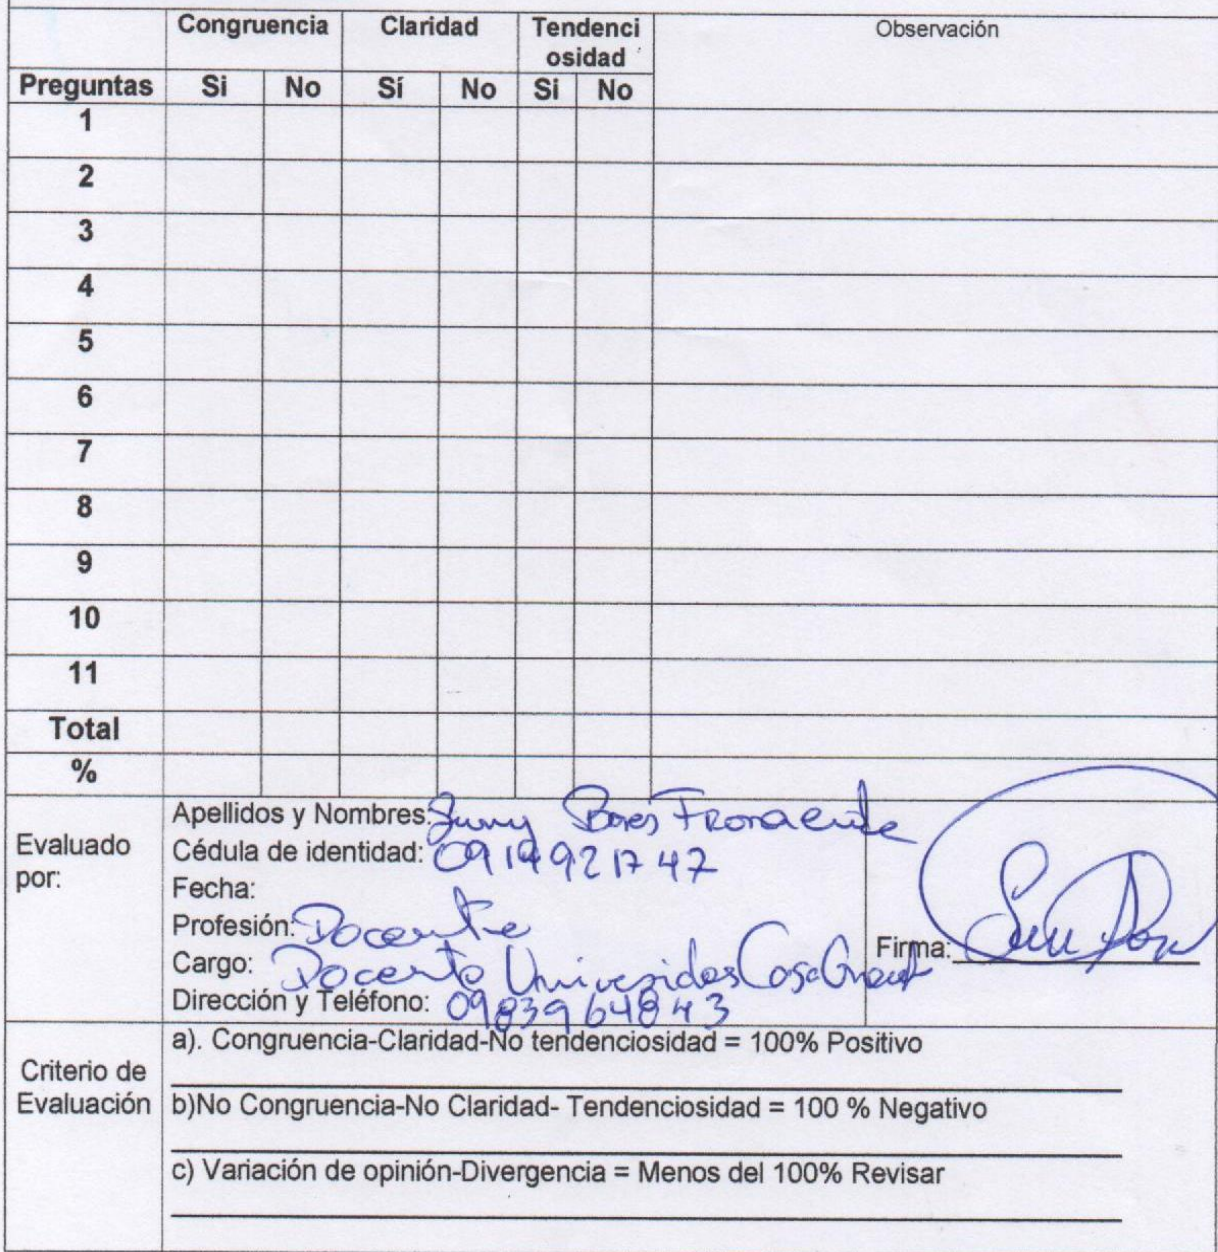 Congruencia Claridad Tendenci Observación
osidad
Preguntas Si No Sí No Si No
1
2
3
4
5
6
7
8
9
10
11
Total
%
Evaluado por:
Apellidos y Nombres:
Cédula de identidad: 0914921747
Fecha:
Profesión: Docente
Cargo: Docente
Dirección y Teléfono: 0983964843
Firma:
Criterio de
Evaluación
a). Congruencia-Claridad-No tendenciosidad = 100% Positivo
b)No Congruencia-No Claridad- Tendenciosidad = 100 % Negativo
c) Variación de opinión-Divergencia = Menos del 100% Revisar